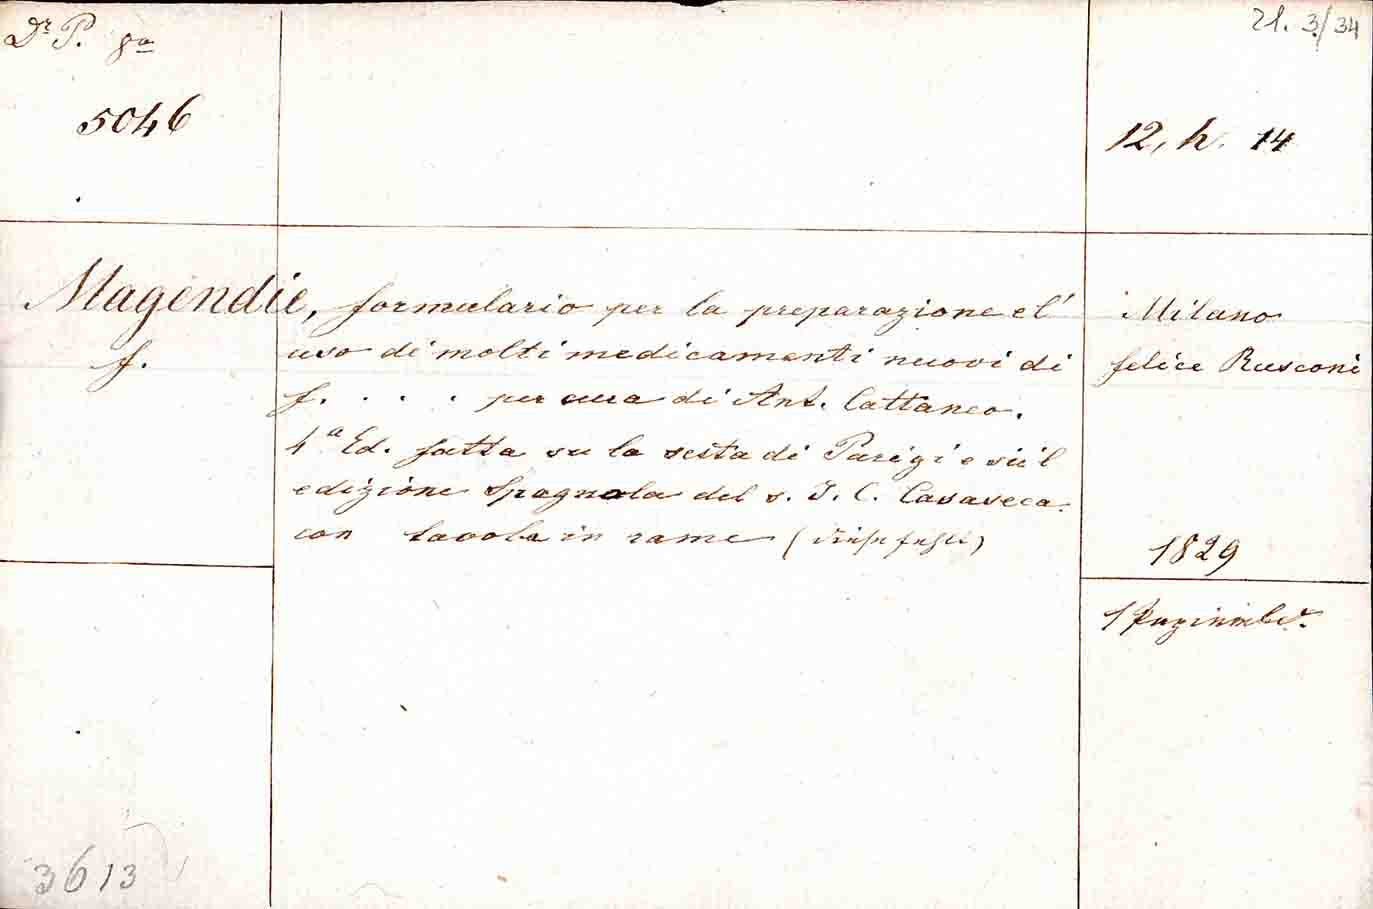 Dr P. 8a
21. 3/34
5046
12, h. 14
Magendie, formulario per la preparazione el'
f.
uso di molti medicamenti nuovi di
f. . . . per cura di Ant. Cattaneo.
4a Ed. fatta su la sesta di Parigi e sù l
edizione Spagnola del s. J. C. Casaseca.
con tavola in rame
Milano
felice Rusconi
1829
1
3613